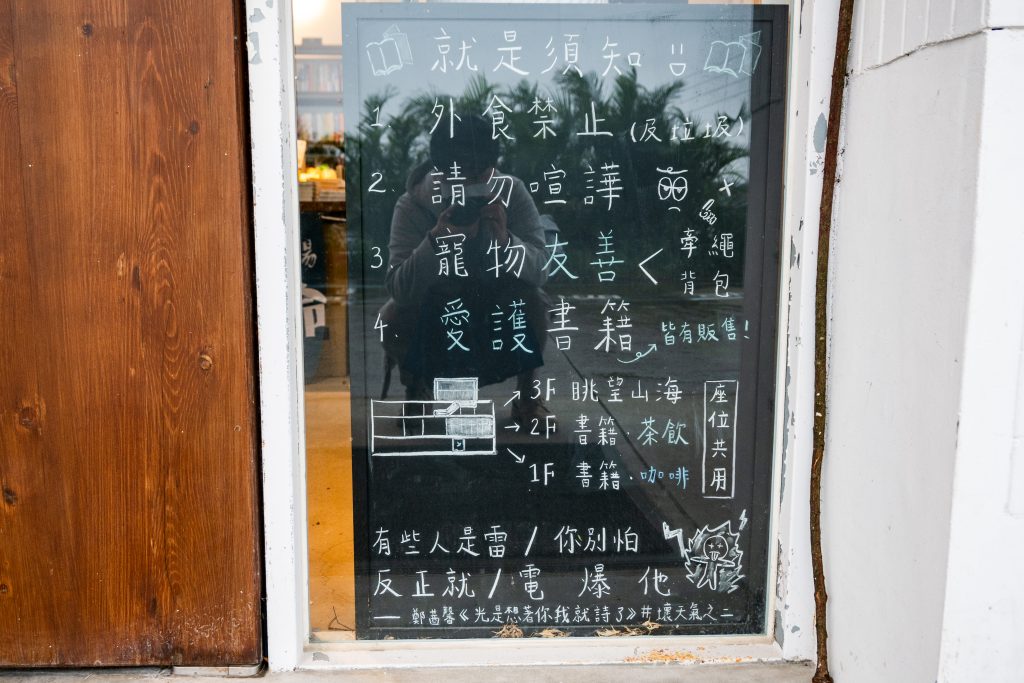 就是須知
1. 外食禁止 (及垃圾)
2. 請勿喧譁
3. 寵物友善 < 牽繩 背包
4. 愛護書籍 → 皆有販售!
3F 眺望山海
2F 書籍·茶飲
1F 書籍·咖啡
座位共用
有些人是雷/你別怕
反正就/電 爆 他
— 鄭茜馨《光是想著你我就詩了》#壞天氣之二